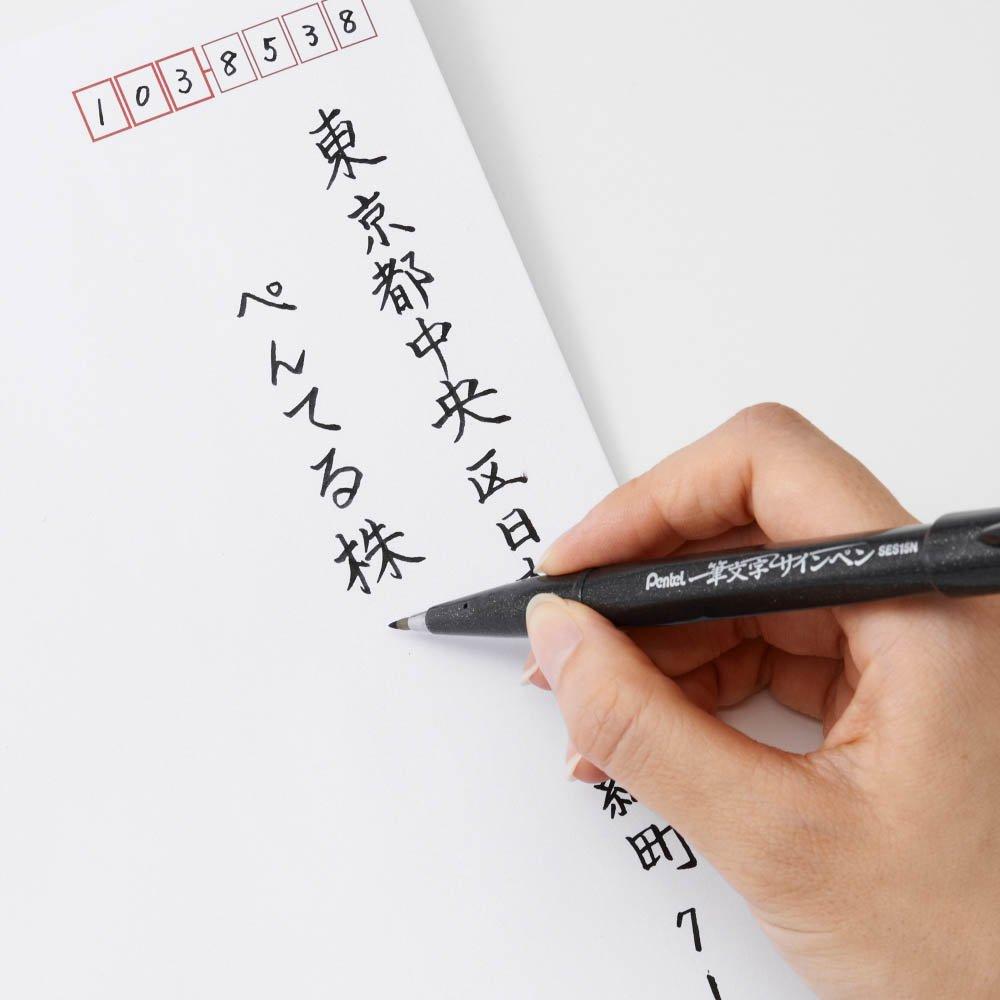 103-8538
東京都中央区日
町7
ぺんてる株
Pentel 筆文字サインペン SES15N